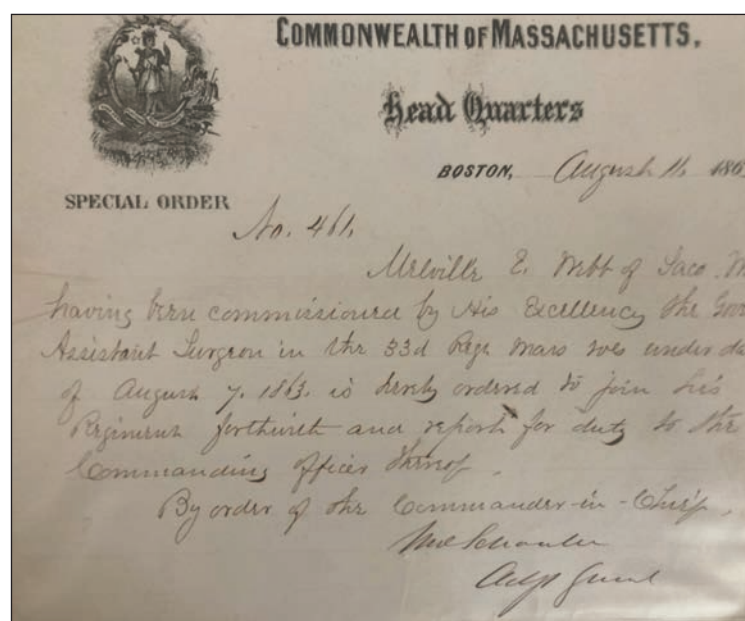 COMMONWEALTH OF MASSACHUSETTS.
Head Quarters
BOSTON, August 11, 186
SPECIAL ORDER
No. 461.
Melville E. Webb of Saco
having been commissioned by His Excellency the Gov
Assistant Surgeon in the 33d Regt Mass Vols under da
of August 7. 1863. is hereby ordered to join his
Regiment forthwith and report for duty to the
Commanding officer thereof.
By order of the Commander-in-Chief.
Wm Schouler
Adjt Genl